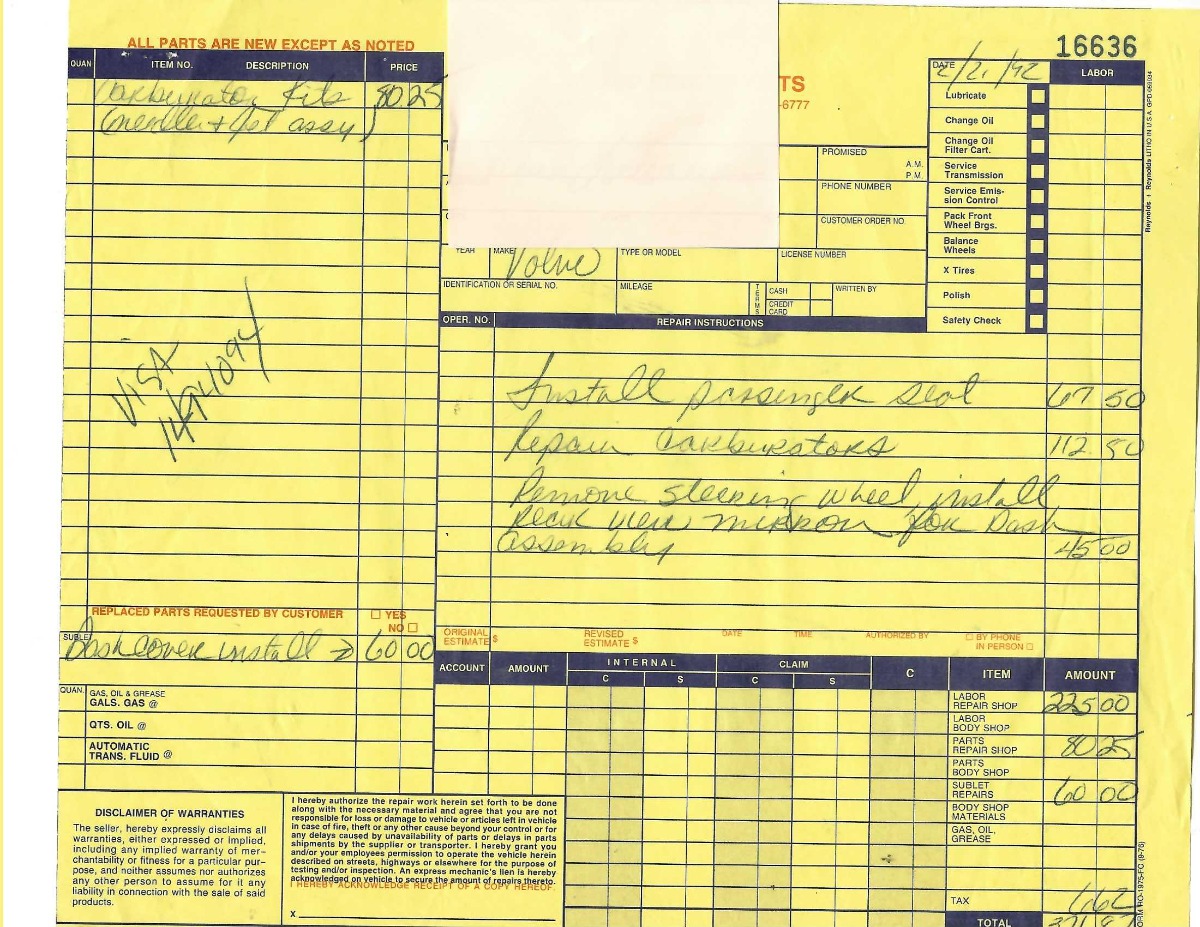 ALL PARTS ARE NEW EXCEPT AS NOTED
QUAN ITEM NO. DESCRIPTION PRICE
Carburator Kits 80 25
(needle + Jet assy)
VISA
REPLACED PARTS REQUESTED BY CUSTOMER YES
NO
SUBLET
Dash cover install → 60 00
QUAN. GAS, OIL & GREASE
GALS. GAS @
QTS. OIL @
AUTOMATIC
TRANS. FLUID @
DISCLAIMER OF WARRANTIES
The seller, hereby expressly disclaims all
warranties, either expressed or implied,
including any implied warranty of mer-
chantability or fitness for a particular pur-
pose, and neither assumes nor authorizes
any other person to assume for it any
liability in connection with the sale of said
products.
I hereby authorize the repair work herein set forth to be done
along with the necessary material and agree that you are not
responsible for loss or damage to vehicle or articles left in vehicle
in case of fire, theft or any other cause beyond your control or for
any delays caused by unavailability of parts or delays in parts
shipments by the supplier or transporter. I hereby grant you
and/or your employees permission to operate the vehicle herein
described on streets, highways or elsewhere for the purpose of
testing and/or inspection. An express mechanic's lien is hereby
acknowledged on vehicle to secure the amount of repairs thereto.
I HEREBY ACKNOWLEDGE RECEIPT OF A COPY HEREOF.
X
16636
TS
-6777
DATE 2/21/92 LABOR
Lubricate
Change Oil
Change Oil
Filter Cart.
Service
Transmission
Service Emis-
sion Control
Pack Front
Wheel Brgs.
Balance
Wheels
X Tires
Polish
Safety Check
PROMISED
A.M.
P.M.
PHONE NUMBER
CUSTOMER ORDER NO.
YEAR MAKE Volvo TYPE OR MODEL LICENSE NUMBER
IDENTIFICATION OR SERIAL NO. MILEAGE TERMS CASH WRITTEN BY
CREDIT
CARD
OPER. NO. REPAIR INSTRUCTIONS
Install passenger seat 67 50
Repair carburators 112 50
Remove steering wheel, install
Rear view mirror for Dash
assembly 45 00
ORIGINAL
ESTIMATE $ REVISED
ESTIMATE $ DATE TIME AUTHORIZED BY BY PHONE
IN PERSON
ACCOUNT AMOUNT INTERNAL CLAIM C ITEM AMOUNT
C S C S
LABOR
REPAIR SHOP 225 00
LABOR
BODY SHOP
PARTS
REPAIR SHOP 80 25
PARTS
BODY SHOP
SUBLET
REPAIRS 60 00
BODY SHOP
MATERIALS
GAS, OIL,
GREASE
TAX 6.62
TOTAL 371 87
Reynolds + Reynolds LITHO IN U.S.A.